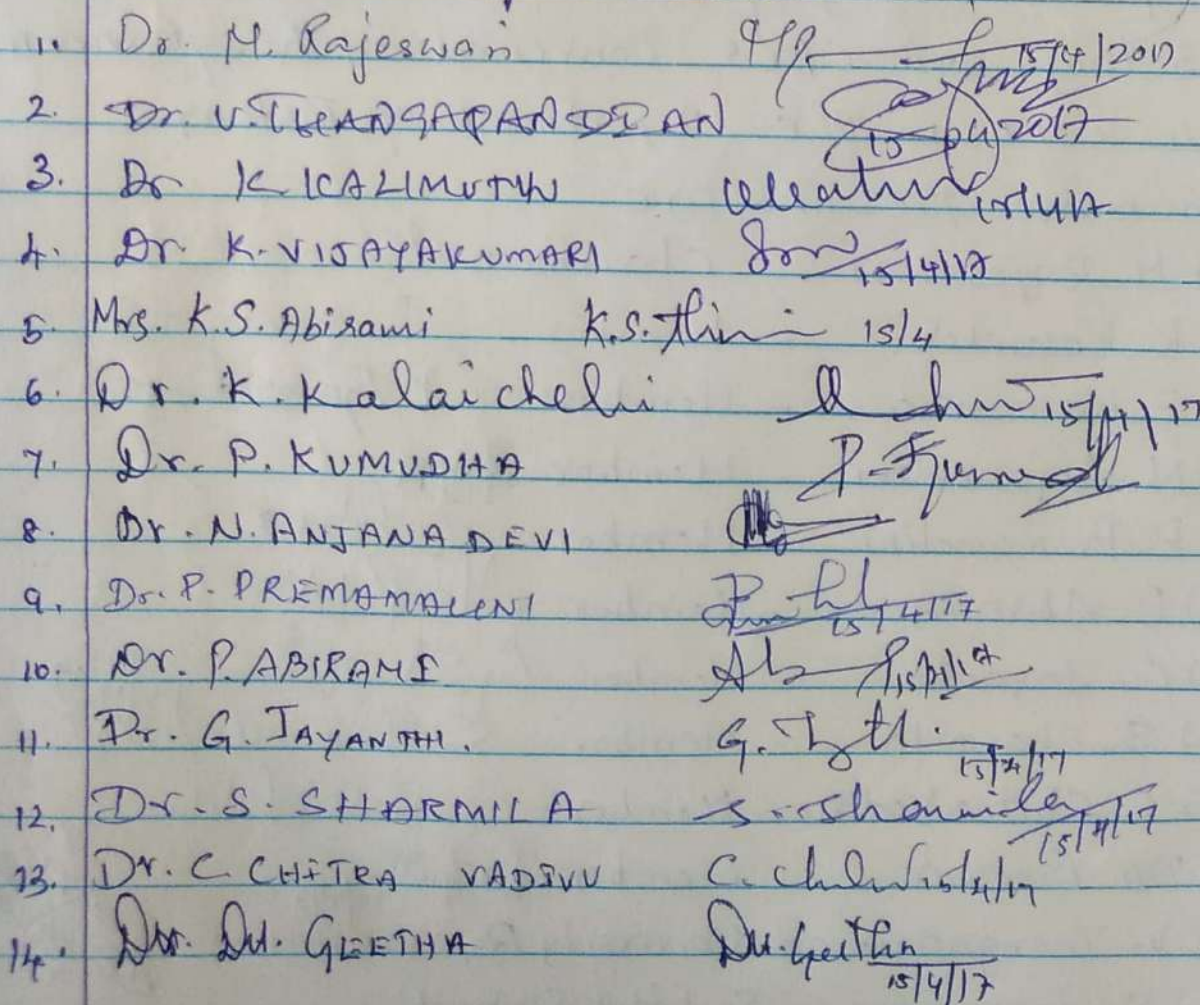 1. Dr. M. Rajeswari 15/4/2017
2. Dr. V. THANGAPANDIAN 15/04/2017
3. Dr K. KALIMUTHU 15/4/17
4. Dr. K. VIJAYAKUMARI 15/4/17
5. Mrs. K.S. Abirami K.S. 15/4
6. Dr. K. Kalaichelvi 15/4/17
7. Dr. P. KUMUDHA P.
8. Dr. N. ANJANA DEVI
9. Dr. P. PREMAMALINI 15/4/17
10. Dr. P. ABIRAMI 15/4/17
11. Dr. G. JAYANTHI. G. 15/4/17
12. Dr. S. SHARMILA S. Sharmila 15/4/17
13. Dr. C. CHITRA VADIVU C. 15/4/17
14. Dr. Du. GEETHA Du. Geetha 15/4/17